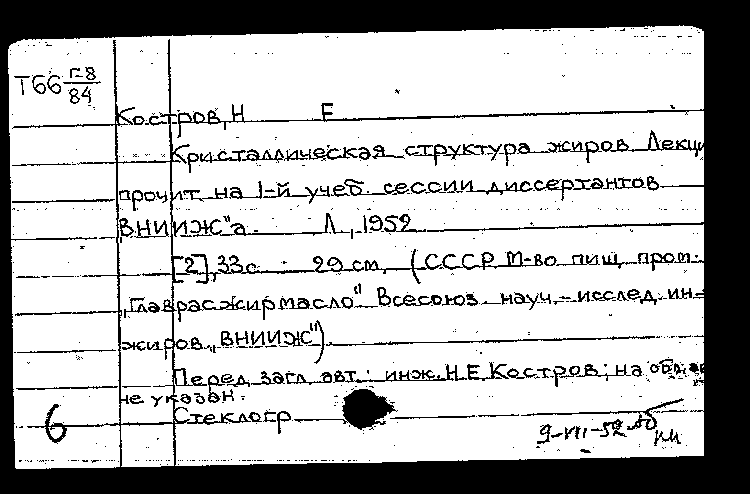 Т66 г-8/84
Костров, Н Е
Кристаллическая структура жиров Лекц
прочит на 1-й учеб. сессии диссертантов
ВНИИЖ"а. Л, 1952
[2], 33с. 29 см, (СССР М-во пищ пром.
"Главрасжирмасло" Всесоюз. науч.-исслед ин-
жиров "ВНИИЖ")
Перед загл авт.: инж. Н.Е Костров; на обл.
не указан.
Стеклогр
6
9-VII-52